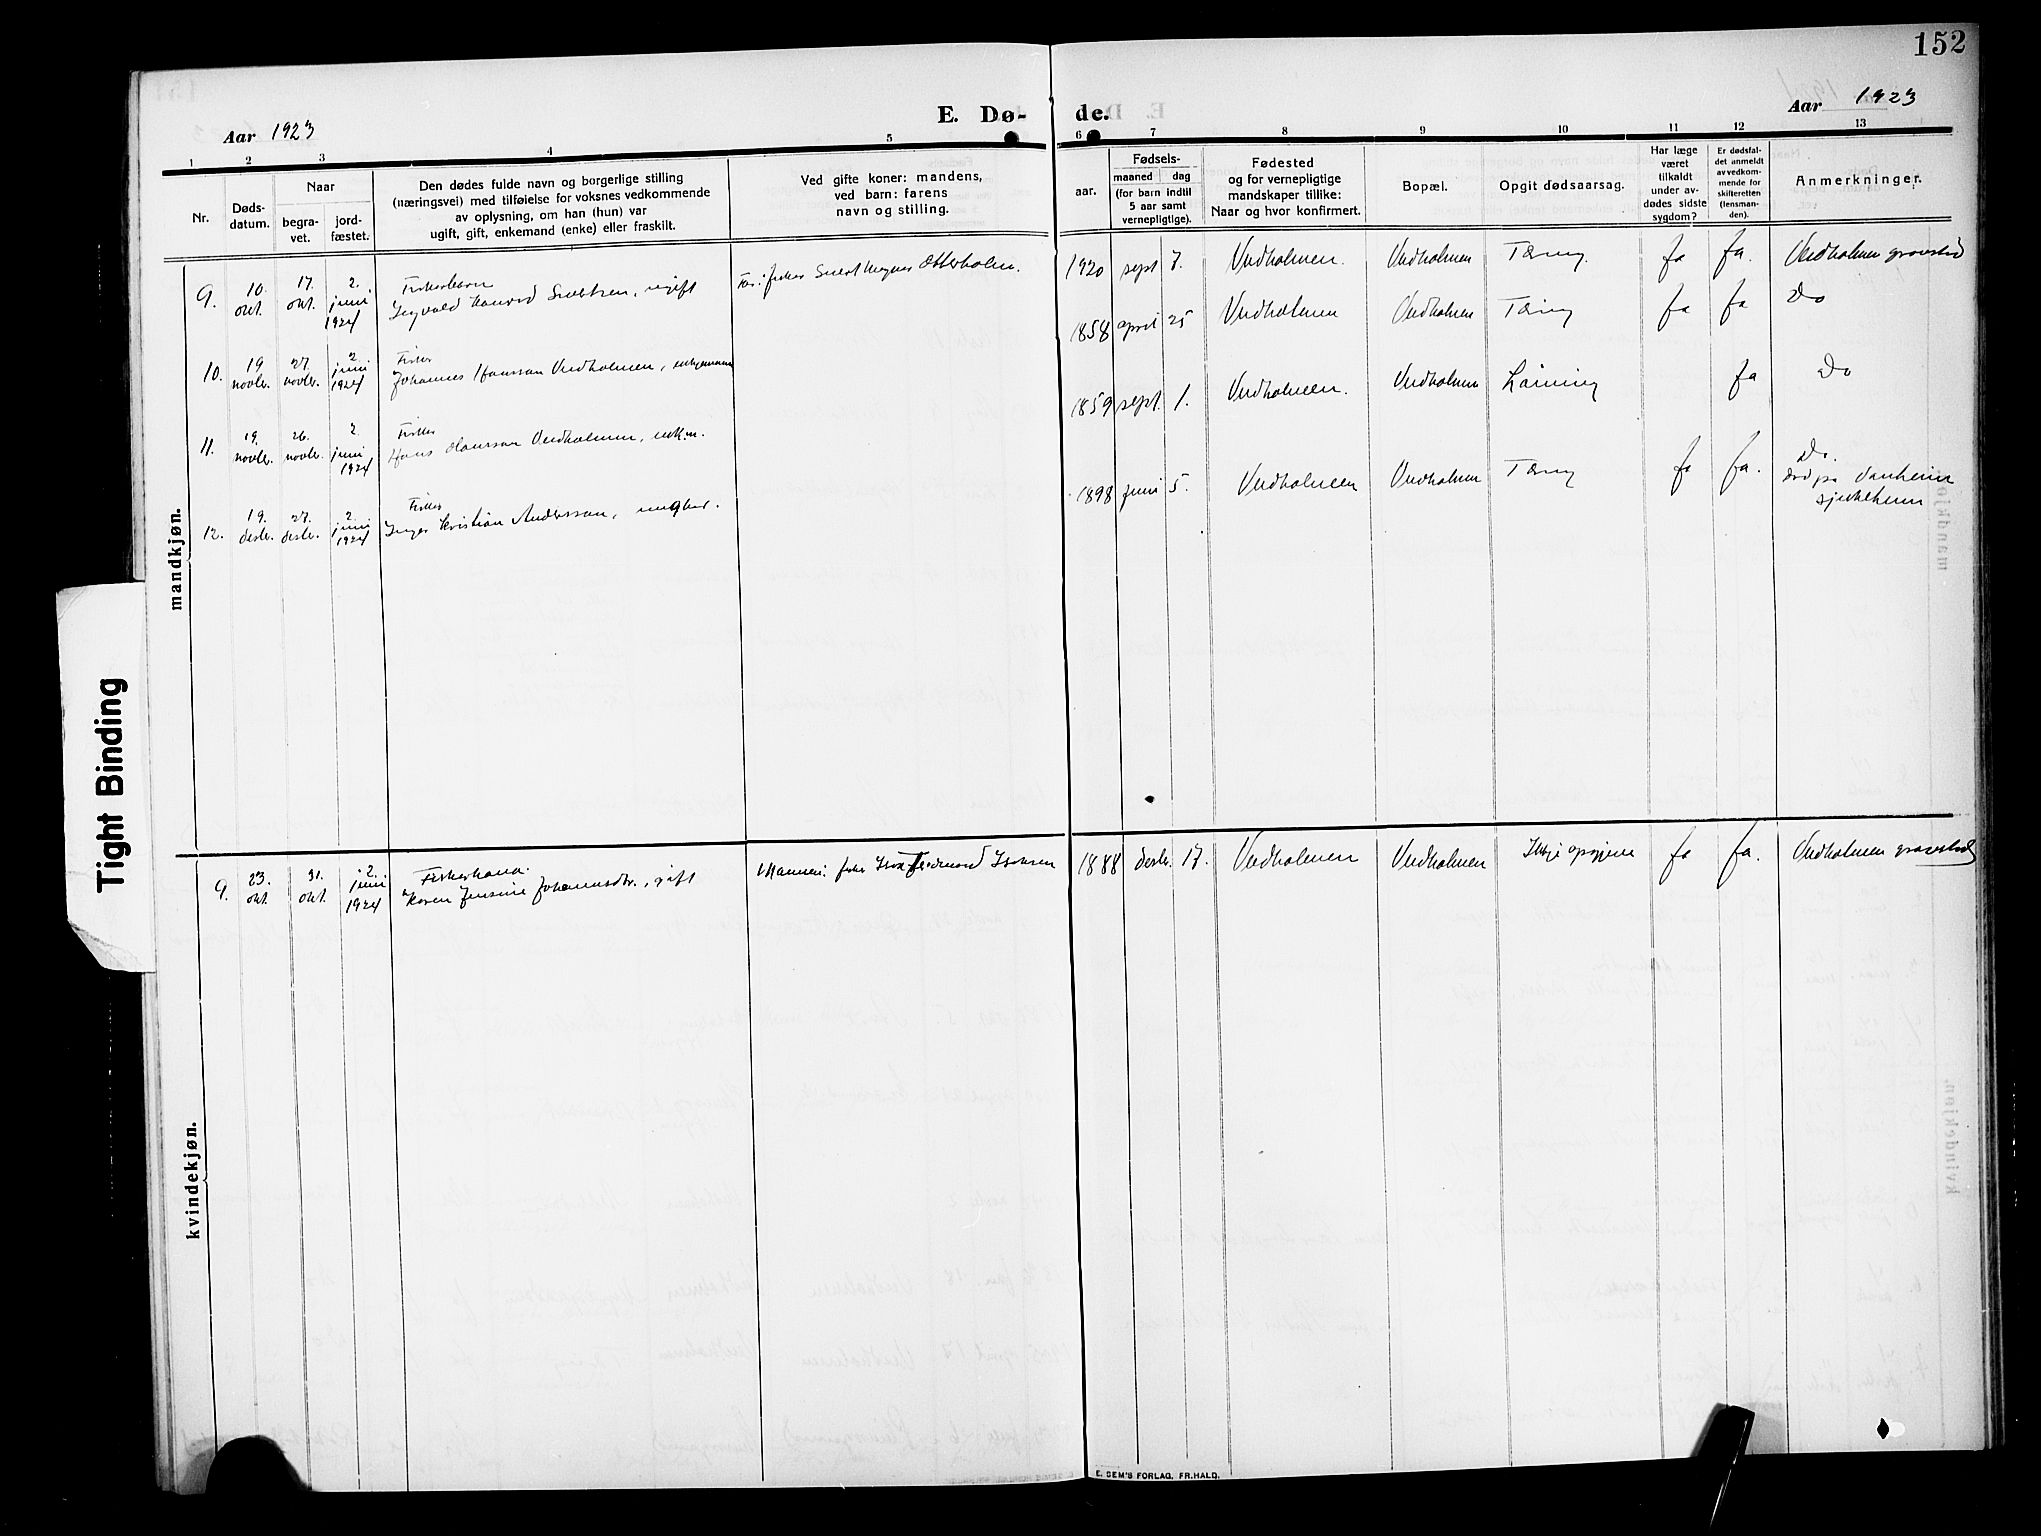 152
E. Dø- de.
Aar 1923
Aar 1923
1 2 3 4 5 6 7 8 9 10 11 12 13
Nr.
Døds-
datum.
Naar
begra-
vet.
jord-
fæstet.
Den dødes fulde navn og borgerlige stilling
(næringsvei) med tilføielse for voksnes vedkommende
av oplysning, om han (hun) var
ugift, gift, enkemand (enke) eller fraskilt.
Ved gifte koner: mandens,
ved barn: farens
navn og stilling.
Fødsels-
aar.
maaned dag
(for barn indtil
5 aar samt
vernepligtige).
Fødested
og for vernepligtige
mandskaper tillike:
Naar og hvor konfirmert.
Bopæl.
Opgit dødsaarsag.
Har læge
været
tilkaldt
under av-
dødes sidste
sygdom?
Er dødsfal-
det anmeldt
av vedkom-
mende for
skifteretten
(lensman-
den).
Anmerkninger.
mandkjøn.
9. 10. okt. 17. okt. 2. juni 1924 Fiskerbarn
Ingvald Konrad Sivertsen, ugift Far: fisker Sivert Magnus Otterholm. 1920 sept 7. Vedholmen. Vedholmen Tæring. ja ja. Vedholmen gravsted
10. 19 novbr. 27. novbr. 2. juni 1924 Fisker
Johannes Hansson Vedholmen, enkjemann 1858 april 25 Vedholmen Vedholmen Tæring ja ja Do
11. 19. novbr. 26. novbr. 2. juni 1924 Fisker
Hans Hansson Vedholmen, enkm. 1859 sept. 1. Vedholmen. Vedholmen Lamning ja Do
12. 19. desbr. 27. desbr. 2. juni 1924 Fisker
Kristian Andersson, ungkar. 1898 juni 5. Vedholmen Vedholmen Tæring ja ja. Do.
død på
sjukeheim
kvindekjøn.
9. 23. okt. 31. okt. 2. juni 1924 Fiskerkona.
Karen Jensine Johannesdtr., gift Mannen: fisker 1888 desbr. 17. Vedholmen Vedholmen Ikkje opgjeve ja ja. Vedholmen gravsted
E. SEM'S FORLAG, FR.HALD.
Tight Binding